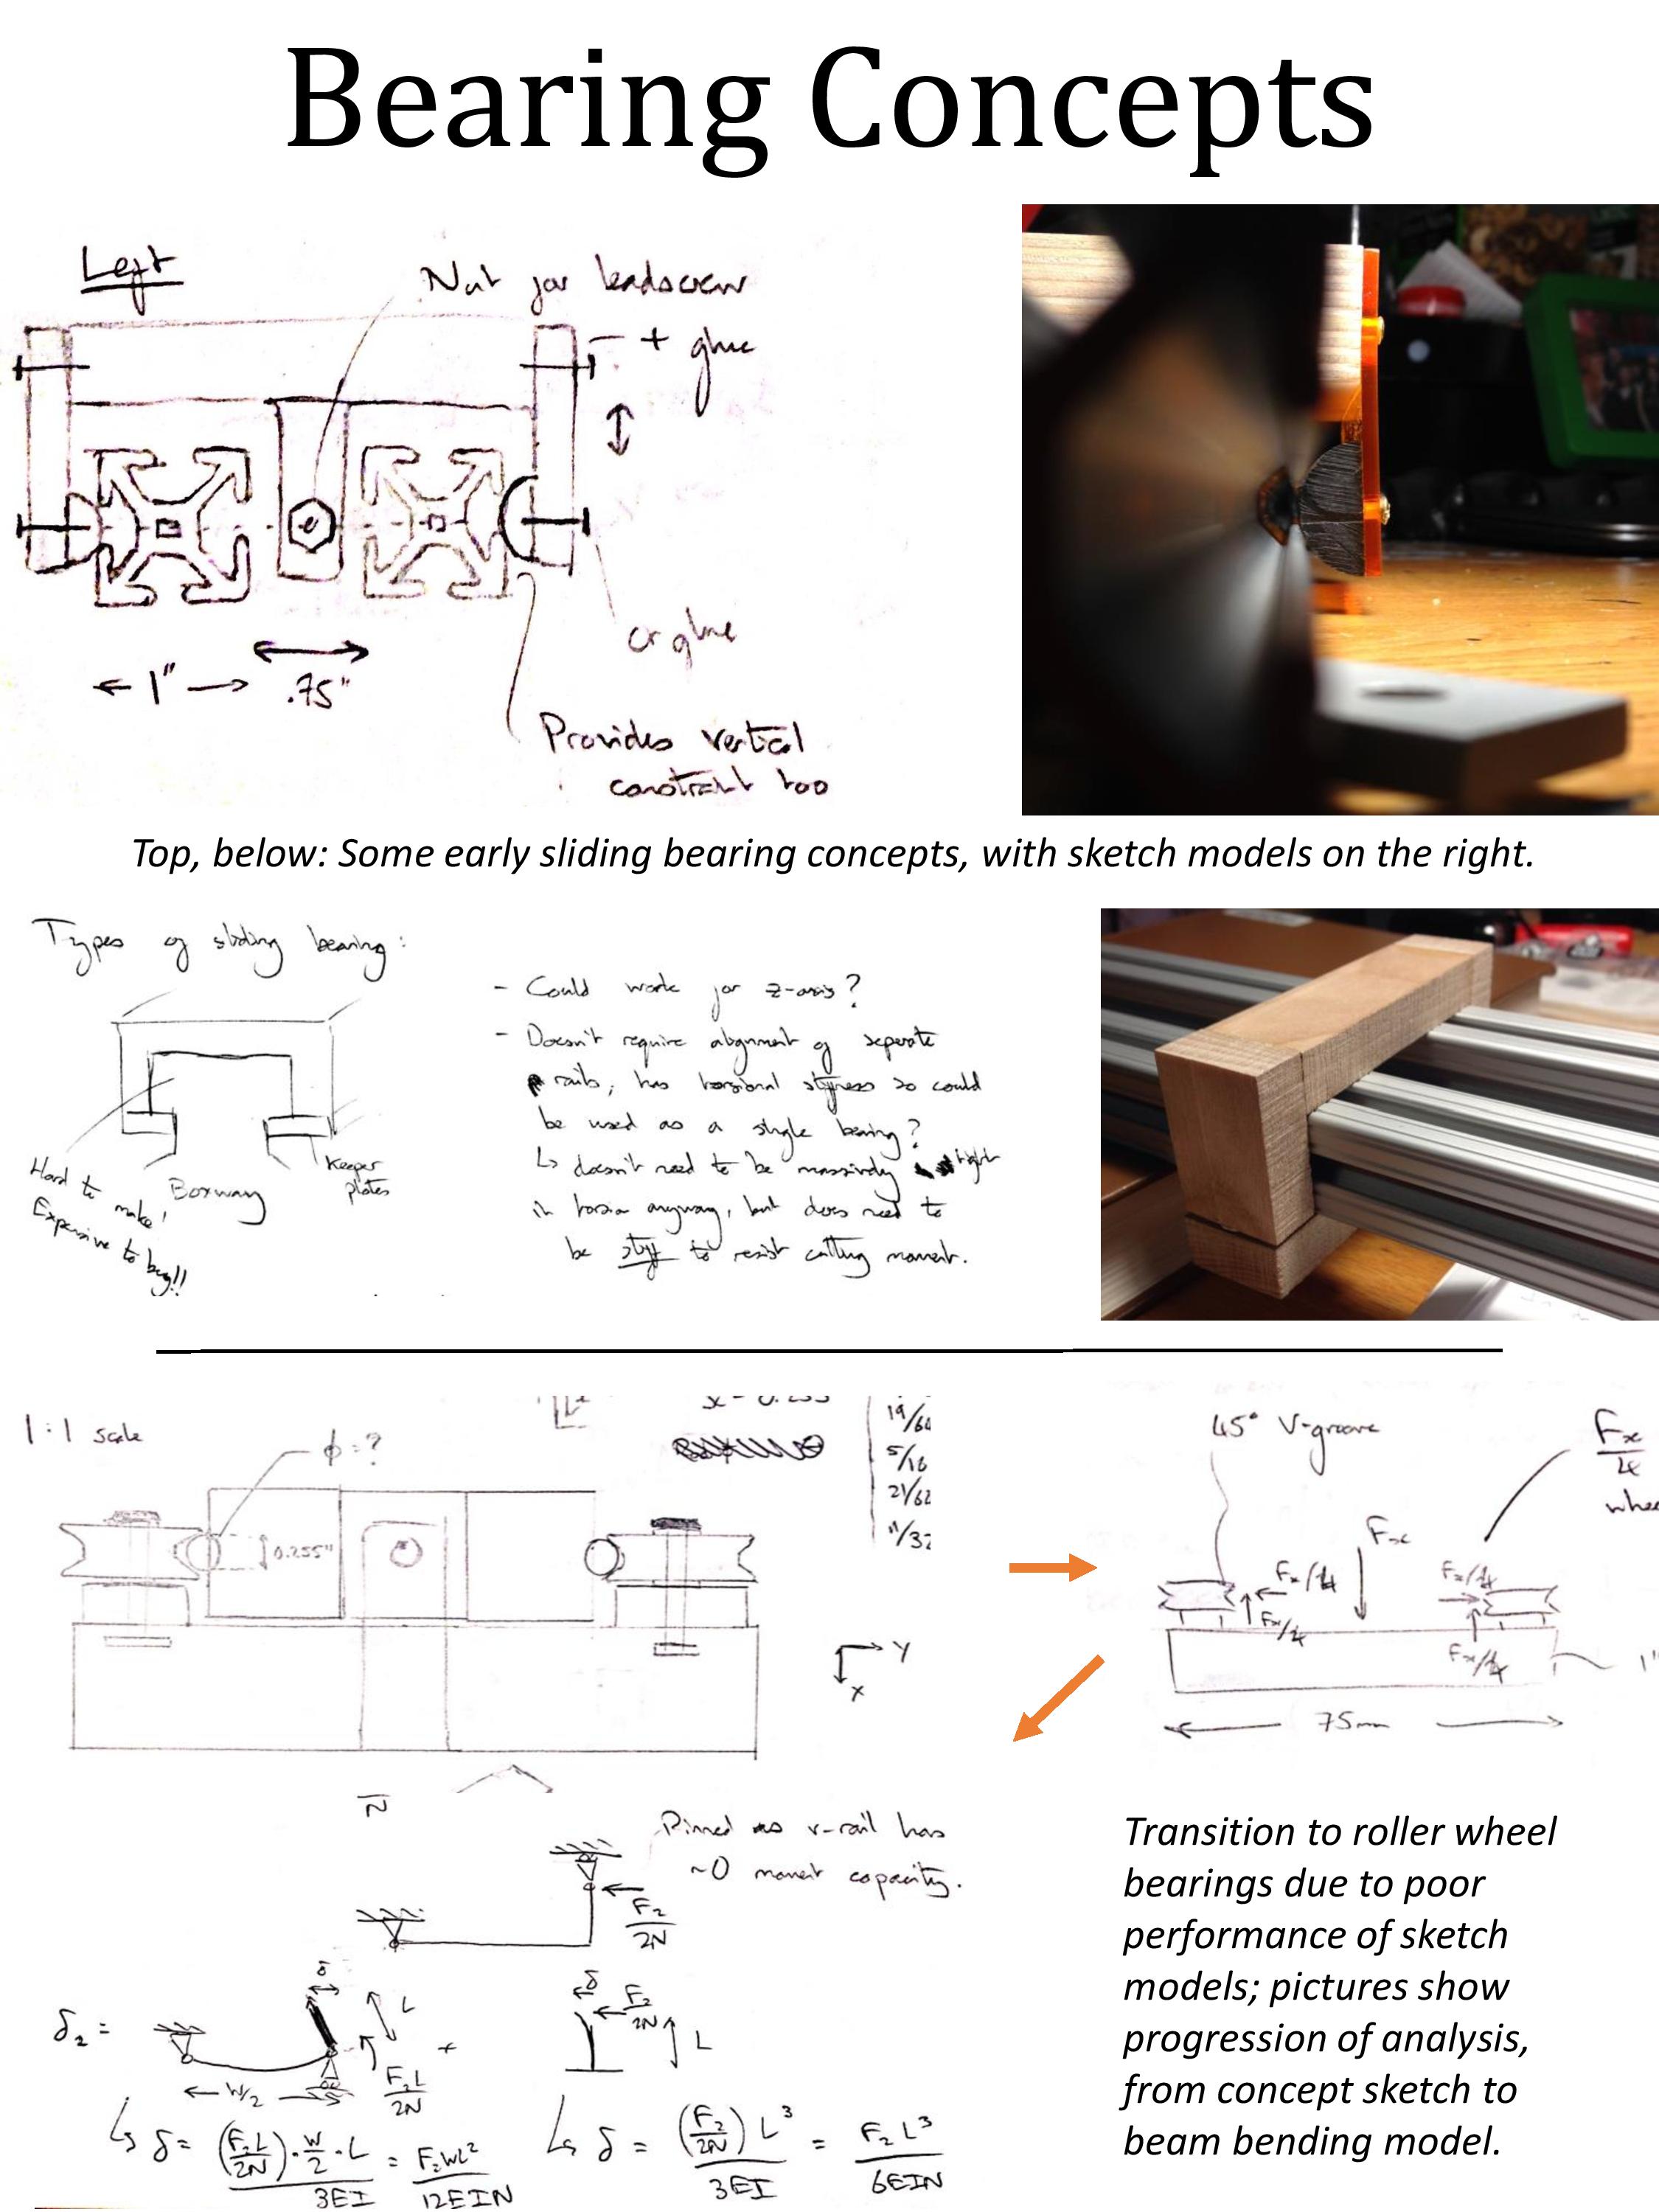 Bearing Concepts
Left
Nut for leadscrew
+ glue
or glue
← 1" →
.75"
Provides vertical
constraint too
Top, below: Some early sliding bearing concepts, with sketch models on the right.
Types of sliding bearing:
Hard to make,
Expensive to buy!!
Boxway
Keeper
plates
- Could work for z-axis?
- Doesn't require alignment of seperate
rails, has torsional stiffness so could
be used as a single bearing?
↳ doesn't need to be massively
in torsion anyway, but does need to
be stiff to resist cutting moment.
1:1 scale
ϕ=?
0.255"
19/64
5/16
21/62
11/32
Y
X
45° V-groove
Fx
4
whee
Fx
Fx/4
Fx/4
Fx/4
Fx/4
1"
75mm
N
Pinned as v-rail has
~0 moment capacity.
F₂
2N
δ₂ =
δ
L
W/2
F₂L
2N
+
δ
F₂
2N
L
↳ δ = (F₂L/2N)·W/2·L / 3EI = F₂WL²/12EIN
↳ δ = (F₂/2N) L³ / 3EI = F₂L³/6EIN
Transition to roller wheel
bearings due to poor
performance of sketch
models; pictures show
progression of analysis,
from concept sketch to
beam bending model.